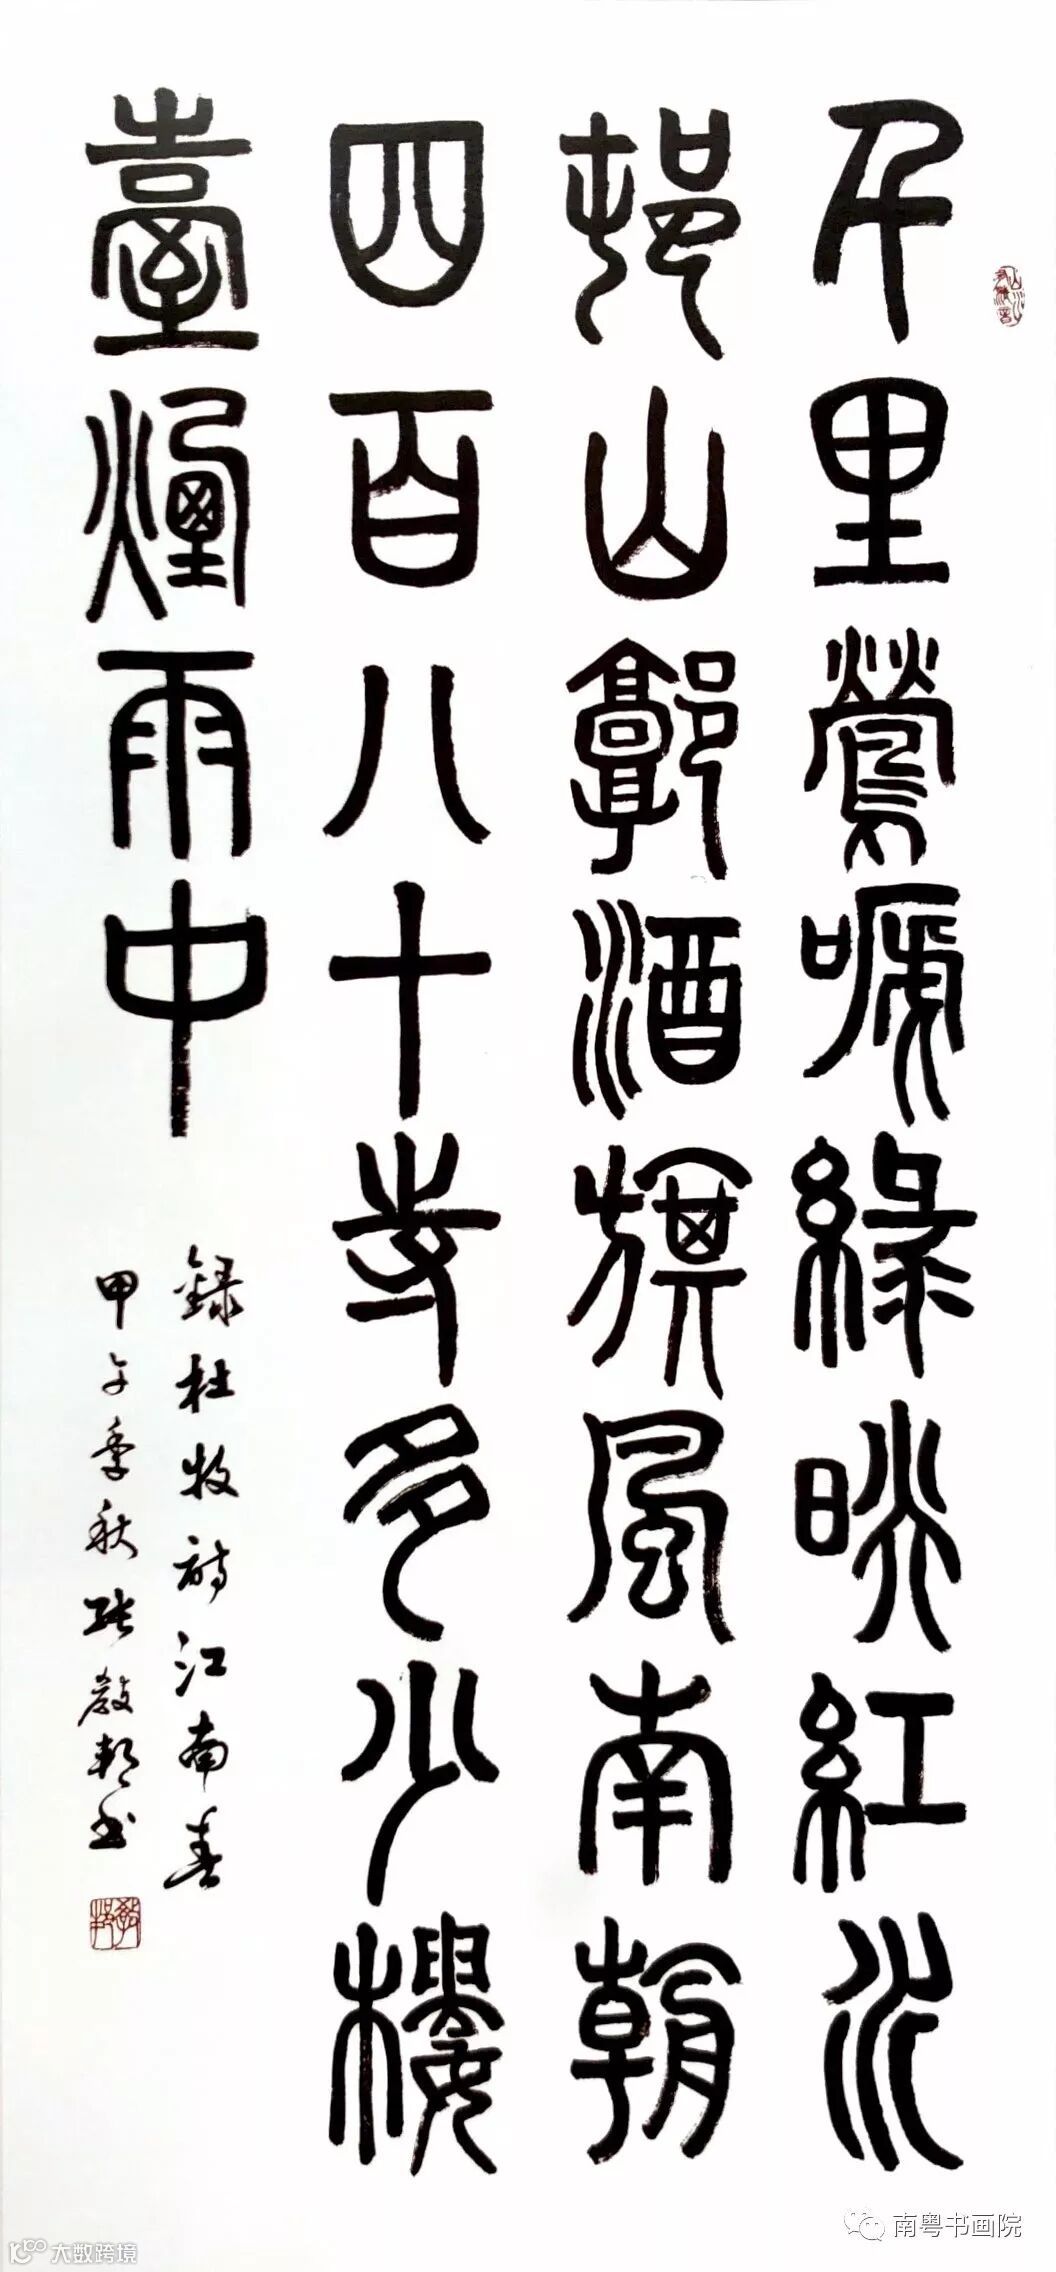 千里鶯嗁綠映紅水
邨山郭酒旗風南朝
四百八十寺多少樓
臺煙雨中
錄杜牧詩江南春
甲午季秋張書
南粤书画院
大数跨境